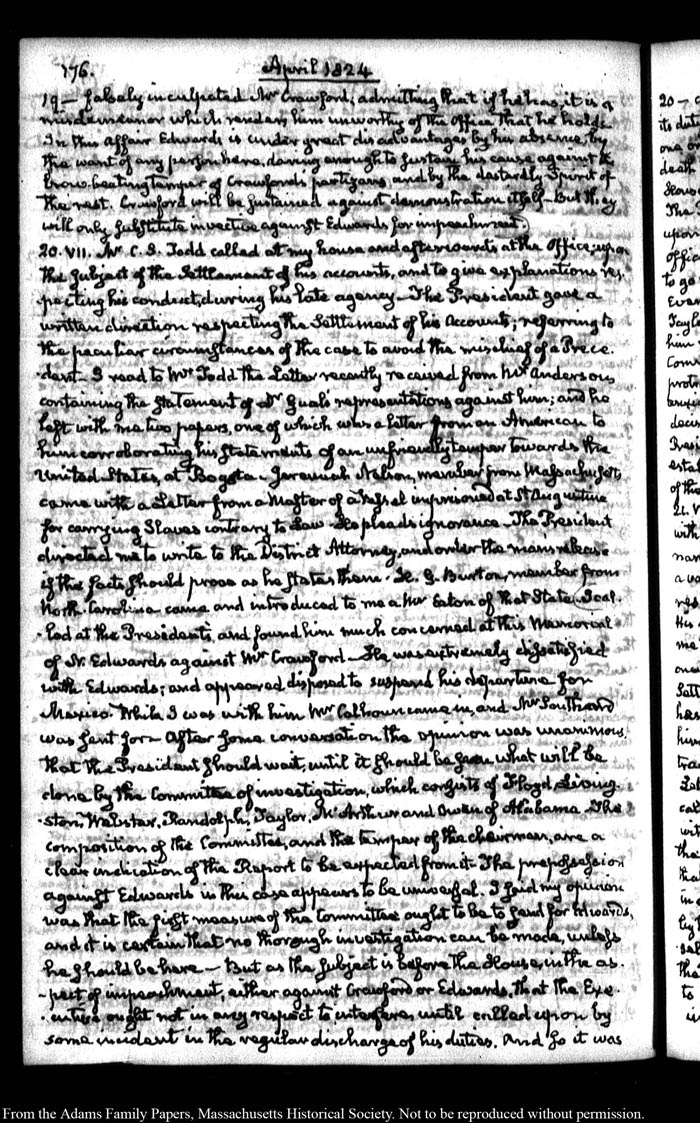 176.
April 1824
19 — falsely inculpated Mr Crawford; admitting that if he has, it is a
misdemeanor which renders him unworthy of the office that he holds.
In this affair Edwards is under great disadvantages by his absence, by
the want of any person here, daring enough to sustain his cause against the
brow-beating temper of Crawford's partizans and by the dastardly spirit of
the rest. Crawford will be sustained against demonstration itself — But they
will only substitute invective against Edwards for impeachment.
20. VII. Mr C. S. Todd called at my house and afterwards at the Office; upon
the subject of the settlement of his accounts, and to give explanations res-
pecting his conduct, during his late agency — The President gave a
written direction respecting the settlement of his Accounts; referring to
the peculiar circumstances of the case to avoid the mischief of a Prece-
dent — I read to Mr Todd the Letter recently received from Mr Anderson
containing the statement of Dr Gual's representations against him; and he
left with me two papers, one of which was a letter from an American to
him corroborating his statements of an unfriendly temper towards the
United States, at Bogota — Jeremiah Nelson, member from Massachusetts
came with a Letter from a Master of a Vessel imprisoned at St Augustine
for carrying Slaves contrary to Law — He pleads ignorance — The President
directed me to write to the District Attorney, and order the man's release
if the facts should prove as he states them. H. G. Burton, member from
North-Carolina came and introduced to me a Mr Eaton of that State. I cal-
led at the Presidents, and found him much concerned at this Memorial
of N. Edwards against Mr Crawford — He was extremely dissatisfied
with Edwards; and appeared disposed to suspend his departure for
Mexico. While I was with him Mr Calhoun came in, and Mr Southard
was sent for — After some conversation the opinion was unanimous,
that the President should wait, until it should be seen what will be
done by the Committee of investigation, which consists of Floyd, Living-
ston, Webster, Randolph, Taylor, McArthur and Owen of Alabama. The
composition of the Committee, and the temper of the chairman, are a
clear indication of the Report to be expected from it — The prepossession
against Edwards in this case appears to be universal. I said my opinion
was that the first measure of the Committee ought to be to send for Edwards,
and it is certain that no thorough investigation can be made, unless
he should be here — But as the subject is before the House, in the as-
pect of impeachment, either against Crawford or Edwards, that the Exe-
cutive ought not in any respect to interfere, until called upon by
some incident in the regular discharge of his duties. And so it was
From the Adams Family Papers, Massachusetts Historical Society. Not to be reproduced without permission.